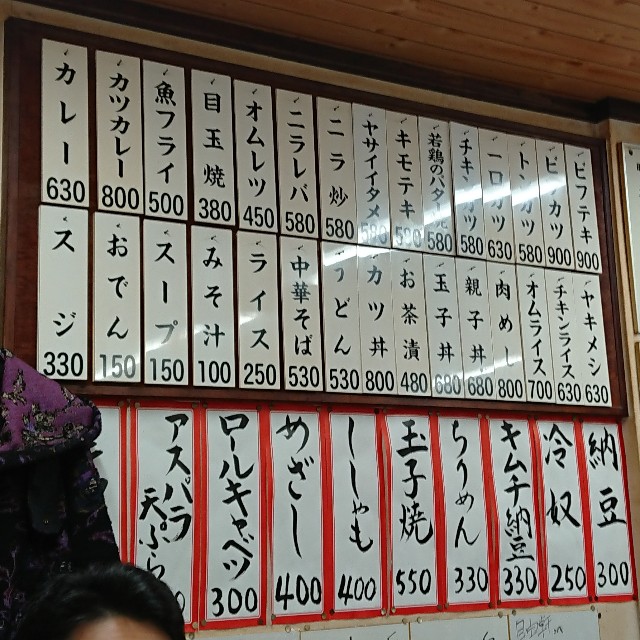 ビフテキ 900
ビーカツ 900
トンカツ 580
一口カツ 630
チキンカツ 580
若鶏のバター焼 580
キモテキ 580
ヤサイイタメ 580
ニラ炒 580
ニラレバ 580
オムレツ 450
目玉焼 380
魚フライ 500
カツカレー 800
カレー 630
ヤキメシ 630
チキンライス 630
オムライス 700
肉めし 800
親子丼 680
玉子丼 680
お茶漬 480
カツ丼 800
うどん 530
中華そば 530
ライス 250
みそ汁 100
スープ 150
おでん 150
スジ 330
納豆 300
冷奴 250
キムチ納豆 330
ちりめん 330
玉子焼 550
ししゃも 400
めざし 400
ロールキャベツ 300
アスパラ
天ぷら
自由軒